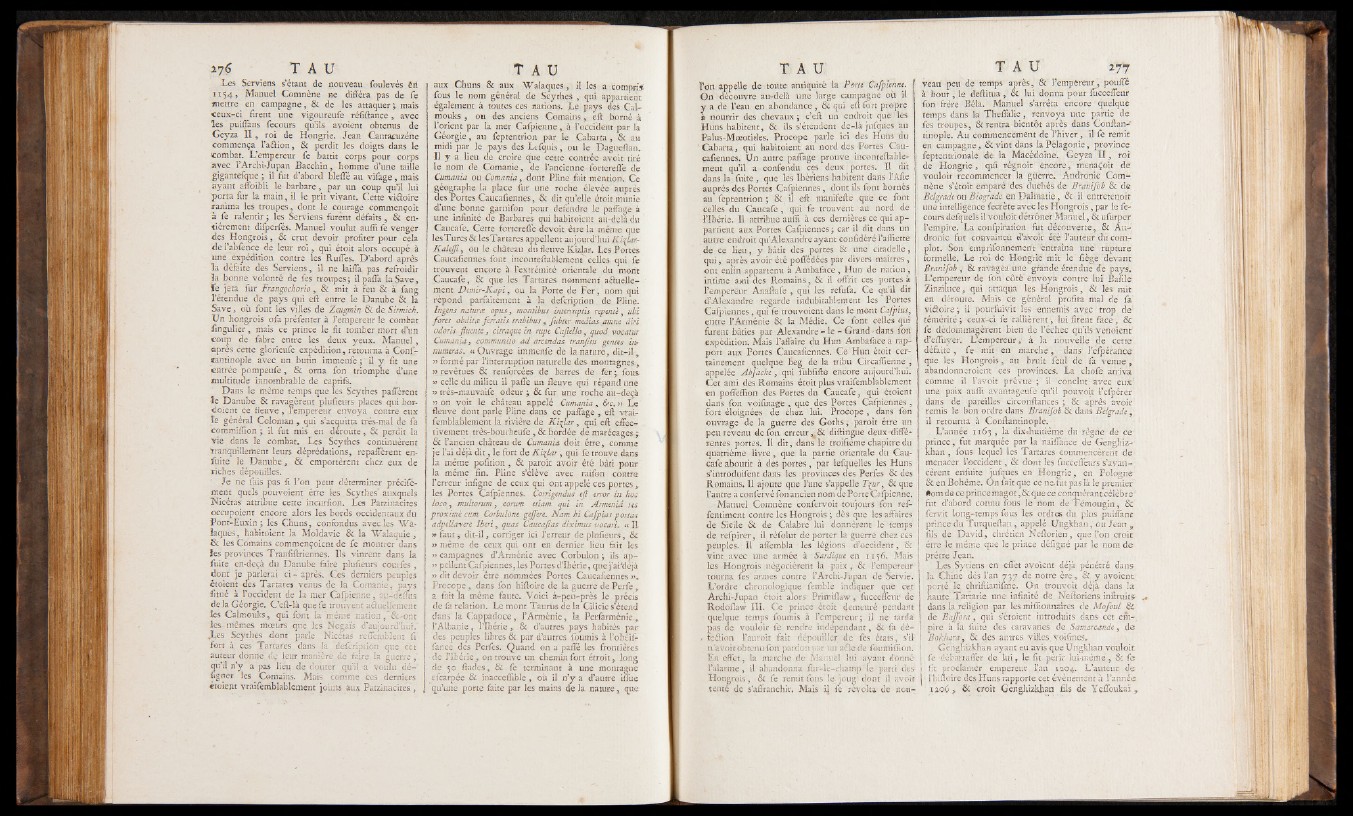 276 T A U
T A U
Les Serviens s'étant de nouveau soulevés en
1154, Manuel Comnène ne différa pas de se
mettre en campagne, & de les attaquer; mais
ceux-ci firent une vigoureuse résistance, avec
les puissans secours qu'ils avoient obtenus de
Geyza II, roi de Hongrie. Jean Cantacuzène
commença l'action, & perdit les doigts dans le
combat. L'empereur se battit corps pour corps
avec l'Archi-Jupan Bacchin, homme d'une taille
gigantesque; il fut d'abord blessé au visage, mais
ayant affoibli le barbare, par un coup qu'il lui
porta sur la main, il le prit vivant. Cette victoire
ranima les troupes, dont le courage commençoit
à se ralentir; les Serviens furent défaits, & en-
tièrement dispersés. Manuel voulut aussi se venger
des Hongrois, & crut devoir profiter pour cela
de l'absence de leur roi, qui étoit alors occupé à
une expédition contre les Russes. D'abord après
la défaite des Serviens, il ne laissa pas refroidir
la bonne volonté de ses troupes; il passa la Save,
se jeta sur Frangochoria, & mit à feu & à sang
l'étendue de pays qui est entre le Danube & la
Save, où sont les villes de Zeugmin & de Sirmich.
Un hongrois osa présenter à l'empereur le combat
singulier, mais ce prince le fit tomber mort d'un
coup de sabre entre les deux yeux. Manuel,
après cette glorieuse expédition, retourna à Cons-
tantinople avec un butin immense; il y fit une
entrée pompeuse, & orna son triomphe d'une
multitude innombrable de captifs.
Dans le même temps que les Scythes passèrent
le Danube & ravagèrent plusieurs places qui bor-
doient ce fleuve, l'empereur envoya contre eux
le général Coloman, qui s'acquitta très-mal de sa
commission; il fut mis en déroute, & perdit la
vie dans le combat. Les Scythes continuèrent
tranquillement leurs déprédations, repassèrent en-
suite le Danube, & emportèrent chez eux de
riches dépouilles.
Je ne sais pas si l'on peut déterminer précisé-
ment quels pouvoient être les Scythes auxquels
Nicétas attribue cette incursion. Les Patzinacites
occupoient encore alors les bords occidentaux du
Pont-Euxin; les Chuns, confondus avec les Wa-
laques, habitoient la Moldavie & la Walaquie,
& les Comains commençoient de se montrer dans
les provinces Transistriennes. Ils vinrent dans la
suite en-deçà du Danube faire plusieurs courses,
dont je parlerai ci-après. Ces derniers peuples
étoient des Tartares venus de la Comanie, pays
situé à l'occident de la mer Caspienne, au-dessus
de la Géorgie. C'est-là que se trouvent actuellement
les Calmouks, qui sont la même nation, & ont
les mêmes mœurs que les Nogais d'aujourd'hui.
Les Scythes dont parle Nicétas ressemblent si
fort à ces Tartares dans la description que cet
auteur donne de leur manière de faire la guerre,
qu'il n'y a pas lieu de douter qu'il a voulu dé-
signer les Comains. Mais comme ces derniers
étoient vraisemblablement joints aux Patzinacites,
aux Chuns & aux Walaques, il les a compris
sous le nom général de Scythes, qui appartient
également à toutes ces nations. Le pays des Cal-
mouks, ou des anciens Comains, est borné à
l'orient par la mer Caspienne, à l'occident par la
Géorgie, au septentrion par le Cabarta, & au
midi par le pays des Lesquis, ou le Daguestan.
Il y a lieu de croire que cette contrée avoit tiré
le nom de Comanie, de l'ancienne forteresse de
Cumania ou Comania, dont Pline fait mention. Ce
géographe la place sur une roche élevée auprès
des Portes Caucasiennes, & dit qu'elle étoit munie
d'une bonne garnison pour défendre le passage à
une infinité de Barbares qui habitoient au-delà du
Caucase. Cette forteresse devoit être la même que
les Turcs & les Tartares appellent aujourd'hui Kizlar-
Kalessi, ou le château du fleuve Kizlar. Les Portes
Caucasiennes sont incontestablement celles qui se
trouvent encore à l'extrémité orientale du mont
Caucase, & que les Tartares nomment actuelle-
ment Demir-Kapi, ou la Porte de Fer, nom qui
répond parfaitement à la description de Pline.
Ingens naturæ opus, montibus interruptis repentè, ubi
fores obditæ ferratis trabibus, subter medias amne diri
odoris fluente, citraque in rupe Castello, quod vocatur
Cumania, communito ad arcendas transitu gentes in-
numeras. « Ouvrage immense de la nature, dit-il,
» formé par l'interruption naturelle des montagnes,
» revêtues & renforcées de barres de fer; sous
» celle du milieu il passe un fleuve qui répand une
» très-mauvaise odeur; & sur une roche au-deçà
» on voit le château appelé Cumania, &c. » Le
fleuve dont parle Pline dans ce passage, est vrai-
semblablement la rivière de Kizlar, qui est effec-
tivement très-bourbeuse, & bordée de marécages;
& l'ancien château de Cumania doit être, comme
je l'ai déjà dit, le fort de Kizlar, qui se trouve dans
la même position, & paroît avoir été bâti pour
la même fin. Pline s'élève avec raison contre
l'erreur insigne de ceux qui ont appelé ces portes,
les Portes Caspiennes. Corrigendus est error in hoc
loco, multorum, eorum etiam qui in Armeniâ res
proxime cum Corbulone gessere. Nam hi Caspias portas
adpellavere Iberi, quas Caucasias diximus vocari. « Il
» faut, dit-il, corriger ici l'erreur de plusieurs, &
» même de ceux qui ont en dernier lieu fait les
» campagnes d'Arménie avec Corbulon; ils ap-
» pellent Caspiennes, les Portes d'Ibérie, que j'ai déjà
» dit devoir être nommées Portes Caucasiennes ».
Procope, dans son histoire de la guerre de Perse,
a fait la même faute. Voici à-peu-près le précis
de sa relation. Le mont Taurus de la Cilicie s'étend
dans la Cappadoce, l'Arménie, la Persarménie,
l'Albanie, l'Ibérie, & d'autres pays habités par
des peuples libres & par d'autres soumis à l'obéis-
sance des Perses. Quand on a passé les frontières
de l'Ibérie, on trouve un chemin fort étroit, long
de 50 stades, & se terminant à une montagne
escarpée & inaccessible, où il n'y a d'autre issue
qu'une porte faite par les mains de la nature, que
T A U
T A U 277
l'on appelle de toute antiquité la Porte Caspienne.
On découvre au-delà une large campagne où il
y a de l'eau en abondance, & qui est fort propre
à nourrir des chevaux; c'est un endroit que les
Huns habitent, & ils s'étendent de-là jusques au
Palus-Mæotides. Procope parle ici des Huns du
Cabarta, qui habitoient au nord des Portes Cau-
casiennes. Un autre passage prouve incontestable-
ment qu'il a confondu ces deux portes. Il dit
dans la suite, que les Ibériens habitent dans l'Asie
auprès des Portes Caspiennes, dont ils sont bornés
au septentrion; & il est manifeste que ce sont
celles du Caucase, qui se trouvent au nord de
l'Ibérie. Il attribue aussi à ces dernières ce qui ap-
partient aux Portes Caspiennes; car il dit dans un
autre endroit qu'Alexandre ayant considéré l'assiette
de ce lieu, y bâtit des portes & une citadelle,
qui, après avoir été possédées par divers maîtres,
ont enfin appartenu à Ambasace, Hun de nation,
intime ami des Romains, & il offrit ces portes à
l'empereur Anastase, qui les refusa. Ce qu'il dit
d'Alexandre regarde indubitablement les Portes
Caspiennes, qui se trouvoient dans le mont Caspius,
entre l'Arménie & la Médie. Ce sont celles qui
furent bâties par Alexandre-le-Grand dans son
expédition. Mais l'affaire du Hun Ambasace a rap-
port aux Portes Caucasiennes. Ce Hun étoit cer-
tainement quelque Beg de la tribu Circassienne,
appelée Absache, qui subsiste encore aujourd'hui.
Cet ami des Romains étoit plus vraisemblablement
en possession des Portes du Caucase, qui étoient
dans son voisinage, que des Portes Caspiennes,
fort éloignées de chez lui. Procope, dans son
ouvrage de la guerre des Goths, paroît être un
peu revenu de son erreur, & distingue deux diffé-
rentes portes. Il dit, dans le troisième chapitre du
quatrième livre, que la partie orientale du Cau-
case aboutit à des portes, par lesquelles les Huns
s'introduisent dans les provinces des Perses & des
Romains. Il ajoute que l'une s'appelle Tzur, & que
l'autre a conservé son ancien nom de Porte Caspienne.
Manuel Comnène conservoit toujours son res-
sentiment contre les Hongrois; dès que les affaires
de Sicile & de Calabre lui donnèrent le temps
de respirer, il résolut de porter la guerre chez ces
peuples. Il assembla les légions d'occident, &
vint avec une armée à Sardique en 1156. Mais
les Hongrois négocièrent la paix, & l'empereur
tourna ses armes contre l'Archi-Jupan de Servie.
L'ordre chronologique semble indiquer que cet
Archi-Jupan étoit alors Primislaw, successeur de
Rodoslaw III. Ce prince étoit demeuré pendant
quelque temps soumis à l'empereur; il ne tarda
pas de vouloir se rendre indépendant, & sa dé-
fection l'auroit fait dépouiller de ses états, s'il
n'avoit obtenu son pardon par un acte de soumission.
En effet, la marche de Manuel lui ayant donné
l'alarme, il abandonna sur-le-champ le parti des
Hongrois, & se remit sous le joug dont il avoit
tenté de s'affranchir. Mais il se révolta de nou-
veau peu de temps après, & l'empereur, poussé
à bout, le destitua, & lui donna pour successeur
son frère Béla. Manuel s'arrêta encore quelque
temps dans la Thessalie, renvoya une partie de
ses troupes, & rentra bientôt après dans Constan-
tinople. Au commencement de l'hiver, il se remit
en campagne, & vint dans la Pélagonie, province
septentrionale de la Macédoine. Geyza II, roi
de Hongrie, qui régnoit encore, menaçoit de
vouloir recommencer la guerre. Andronic Com-
nène s'étoit emparé des duchés de Branisob & de
Belgrade ou Biograde en Dalmatie, & il entretenoit
une intelligence secrète avec les Hongrois, par le se-
cours desquels il vouloit détrôner Manuel, & usurper
l'empire. La conspiration fut découverte, & An-
dronic fut convaincu d'avoir été l'auteur du com-
plot. Son emprisonnement entraîna une rupture
formelle. Le roi de Hongrie mit le siège devant
Branisob, & ravagea une grande étendue de pays.
L'empereur de son côté envoya contre lui Basile
Zinziluce, qui attaqua les Hongrois, & les mit
en déroute. Mais ce général profita mal de sa
victoire; il poursuivit les ennemis avec trop de
témérité; ceux-ci se rallièrent, lui firent face, &
se dédommagèrent bien de l'échec qu'ils venoient
d'essuyer. L'empereur, à la nouvelle de cette
défaite, se mit en marche, dans l'espérance
que les Hongrois, au bruit seul de sa venue,
abandonneroient ces provinces. La chose arriva
comme il l'avoit prévue; il conclut avec eux
une paix aussi avantageuse qu'il pouvoit l'espérer
dans de pareilles circonstances; & après avoir
remis le bon ordre dans Branisob & dans Belgrade,
il retourna à Constantinople.
L'année 1163, la dix-huitième du règne de ce
prince, fut marquée par la naissance de Genghiz-
khan, sous lequel les Tartares commencèrent de
menacer l'occident, & dont les successeurs s'avan-
cèrent ensuite jusques en Hongrie, en Pologne
& en Bohême. On sait que ce ne fut pas là le premier
nom de ce prince mogor, & que ce conquérant célèbre
fut d'abord connu sous le nom de Témougin, &
servit long-temps sous les ordres du plus puissant
prince du Turquestan, appelé Ungkhan, ou Jean,
fils de David, chrétien Nestorien, que l'on croit
être le même que le prince désigné par le nom de
prêtre Jean.
Les Syriens en effet avoient déjà pénétré dans
la Chine dès l'an 737 de notre ère, & y avoient
porté le christianisme. On trouvoit déjà dans la
haute Tartarie une infinité de Nestoriens instruits
dans la religion par les missionnaires de Mosoul &
de Bassora, qui s'étoient introduits dans cet em-
pire à la suite des caravanes de Samarcande, de
Bokhara, & des autres villes voisines.
Genghizkhan ayant eu avis que Ungkhan vouloit
se débarrasser de lui, le fit périr lui-même, & se
fit proclamer empereur l'an 1204. L'auteur de
l'histoire des Huns rapporte cet événement à l'année
1206, & croit Genghizkhan fils de Yessoukai,